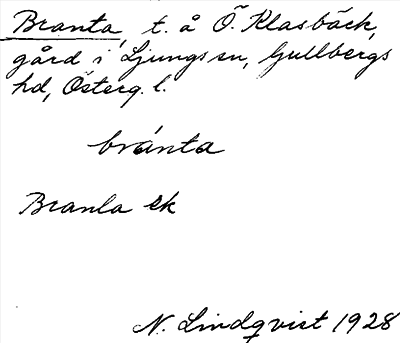 Branta, t. å Ö. Klasbäck,
gård i Ljungs sn, Gullbergs
hd, Österg. l.
bránta
Branta ek
N. Lindqvist 1928